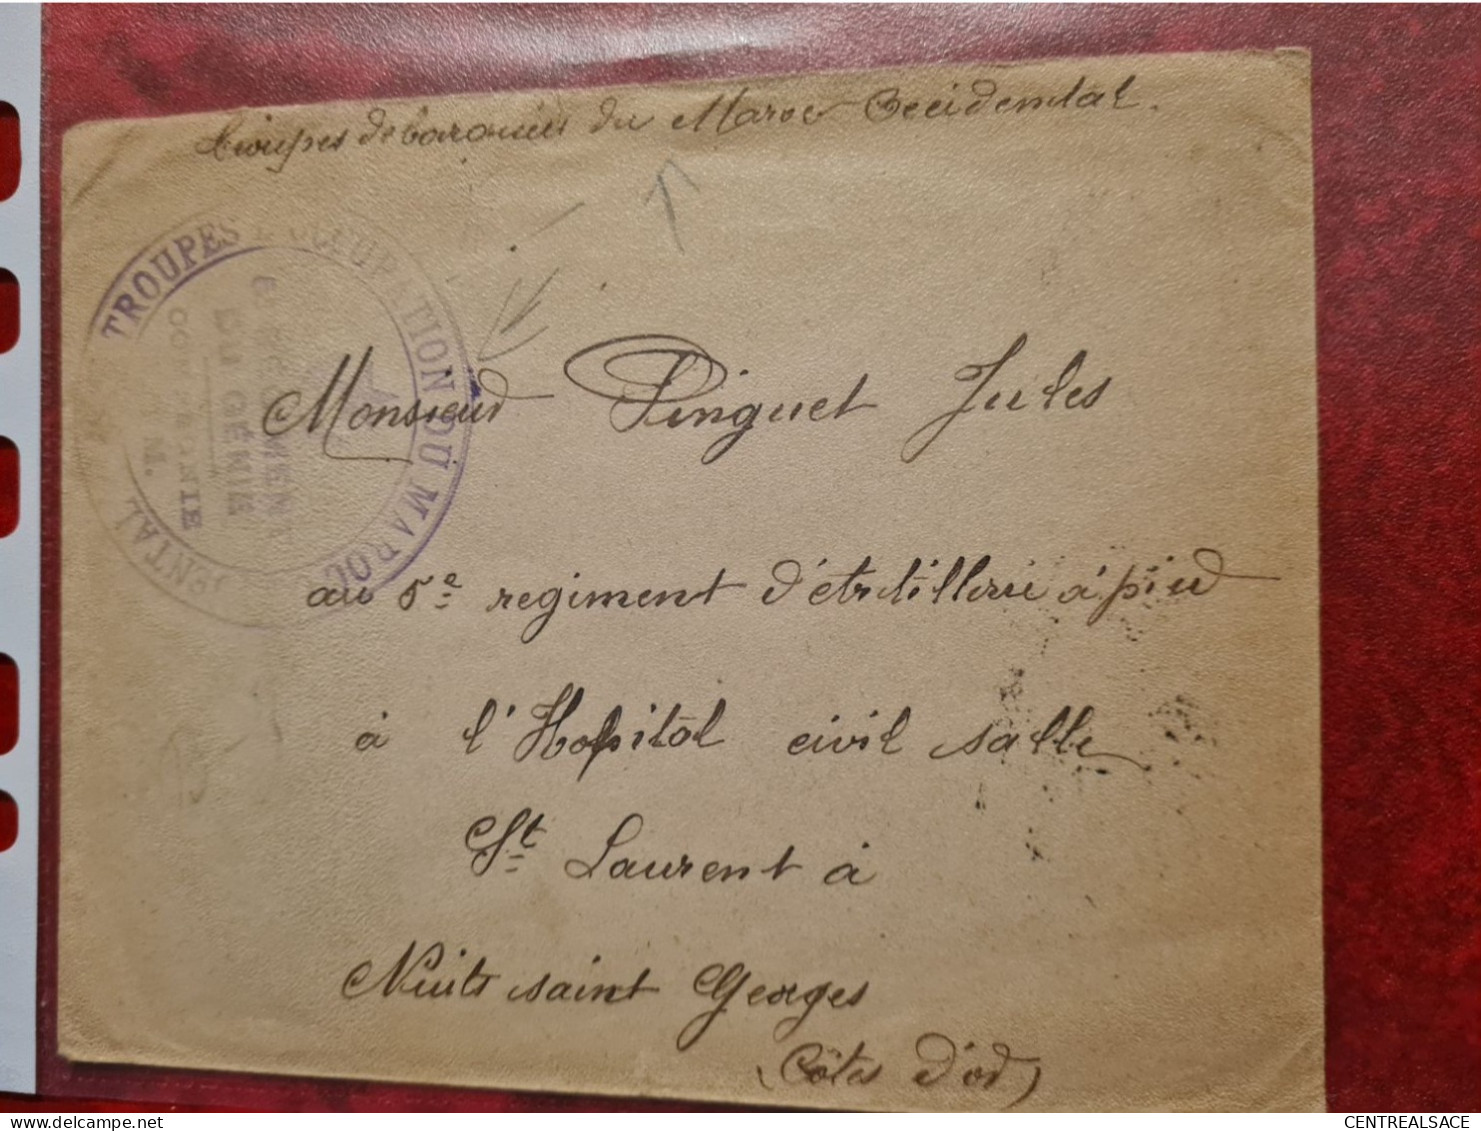 Troupes debarquées du Maroc Occidental.
TROUPES D'OCCUPATION DU MAROC
DU GÉNIE
M.
Monsieur Pinguet Jules
au 5e regiment d'artillerie à pied
à l'Hopital civil salle
St Laurent à
Nuits saint Georges
(Côtes d'or)
CENTREALSACE